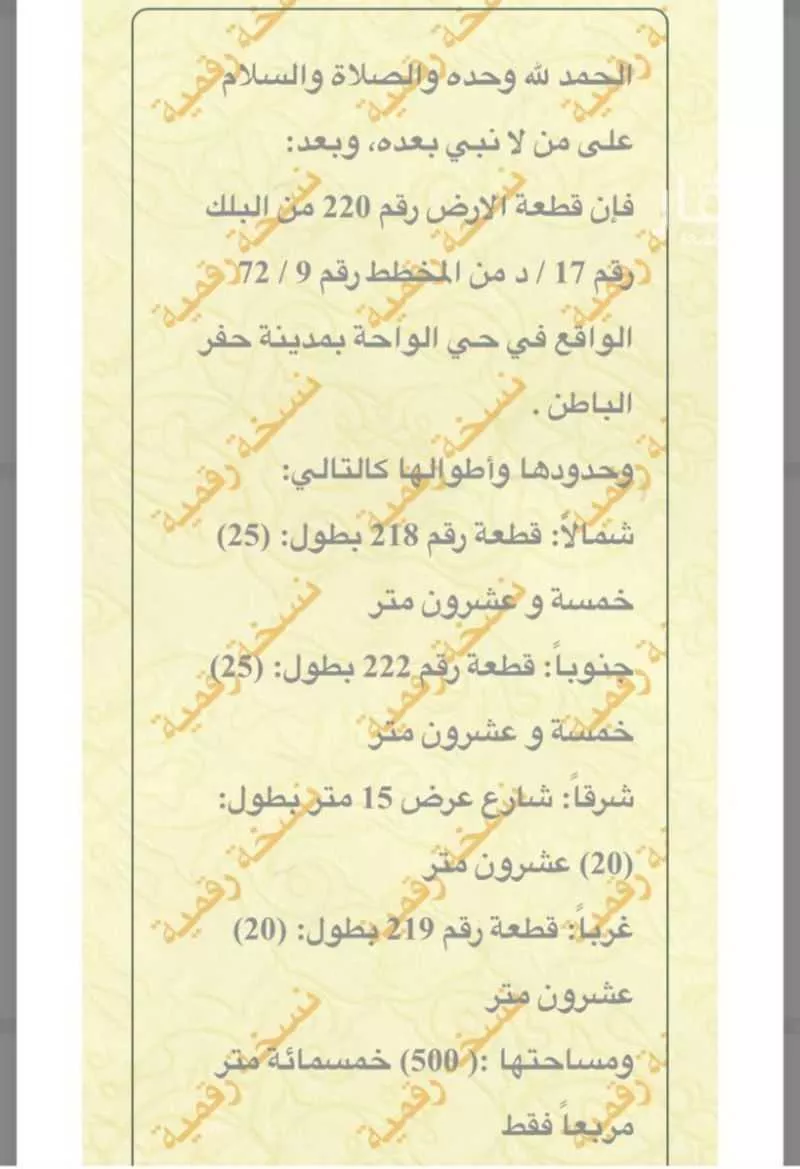 الحمد لله وحده والصلاة والسلام
على من لا نبي بعده، وبعد:
فإن قطعة الارض رقم 220 من البلك
رقم 17 / د من المخطط رقم 9 / 72
الواقع في حي الواحة بمدينة حفر
الباطن .
وحدودها وأطوالها كالتالي:
شمالاً: قطعة رقم 218 بطول: (25)
خمسة و عشرون متر
جنوباً: قطعة رقم 222 بطول: (25)
خمسة و عشرون متر
شرقاً: شارع عرض 15 متر بطول:
(20) عشرون متر
غرباً: قطعة رقم 219 بطول: (20)
عشرون متر
ومساحتها :( 500) خمسمائة متر
مربعاً فقط
نسخة رقمية